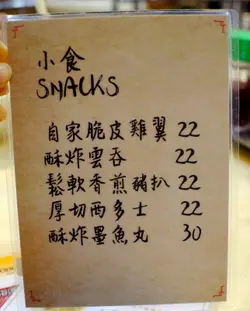 小食
SNACKS
自家脆皮雞翼 22
酥炸雲吞 22
鬆軟香煎豬扒 22
厚切西多士 22
酥炸墨魚丸 30